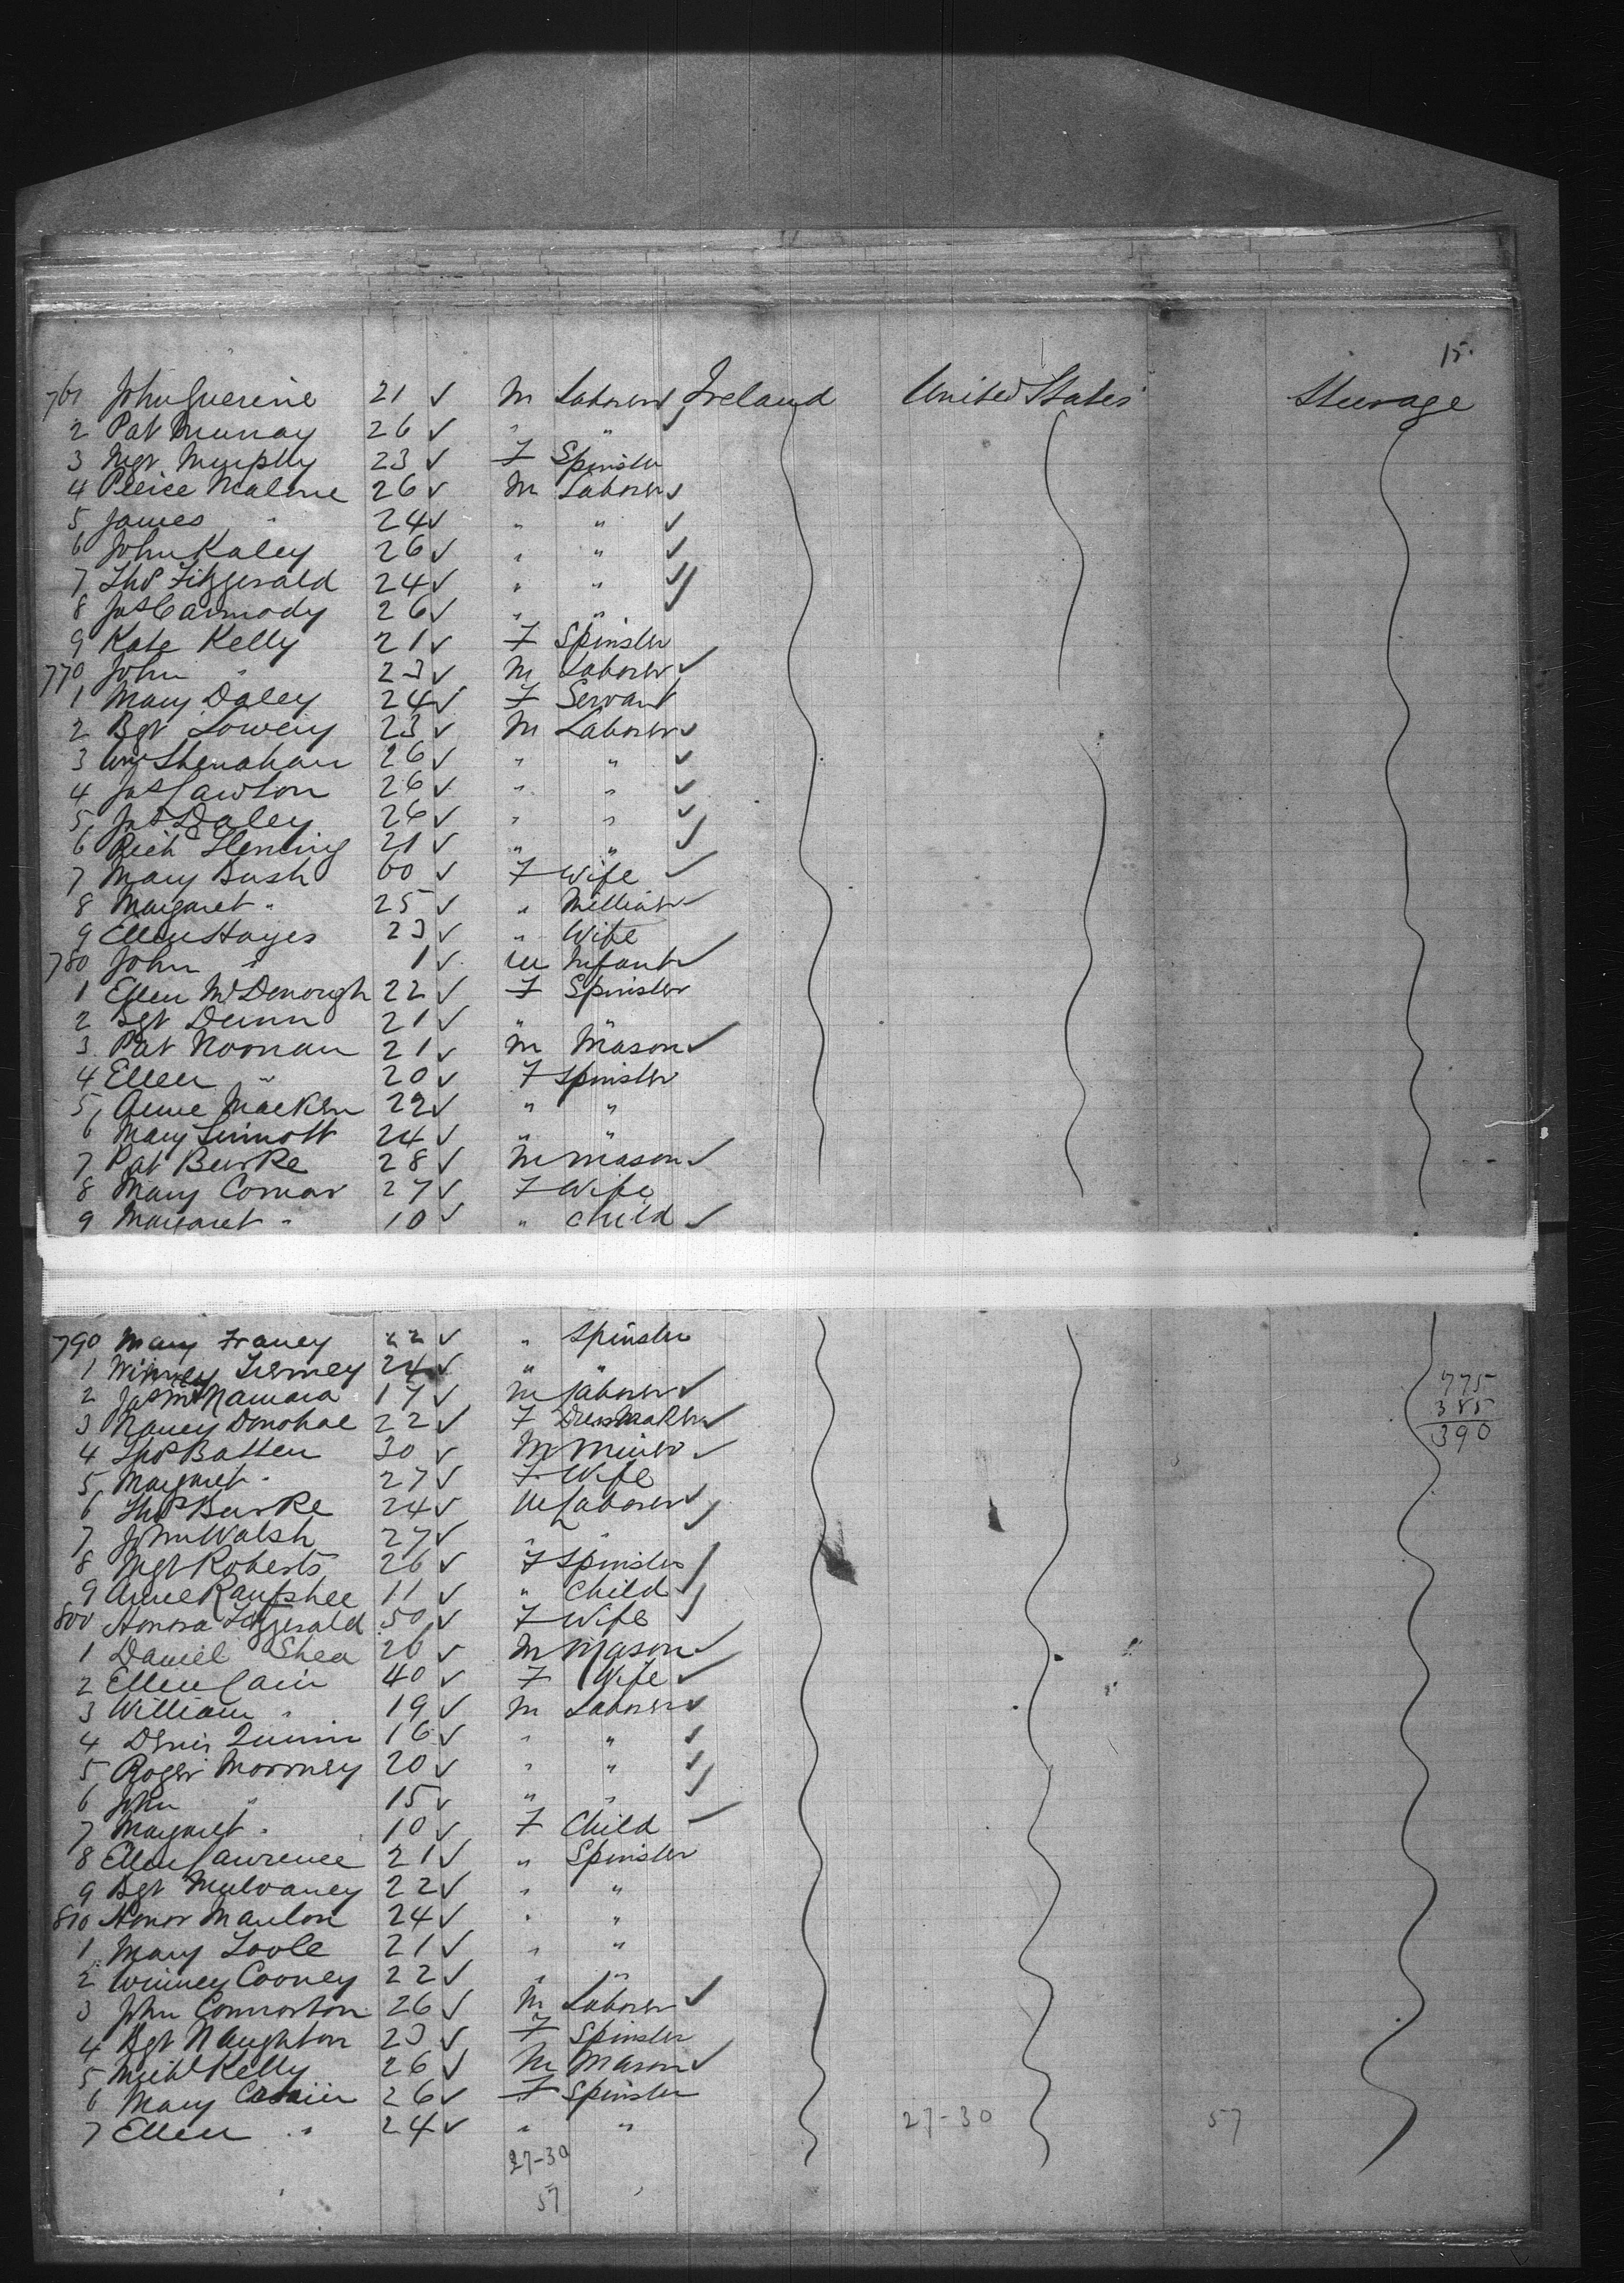 15.
761 John Guerine 21 ✓ M Laborer ✓ Ireland United States Steerage
2 Pat Murray 26 ✓ " "
3 Mgt Murphy 23 ✓ F Spinster
4 Peirce Malone 26 ✓ M Laborer ✓
5 James " 24 ✓ " " ✓
6 John Kaley 26 ✓ " " ✓
7 Thos Fitzgerald 24 ✓ " " ✓
8 Jas Carmody 26 ✓ " " ✓
9 Kate Kelly 21 ✓ F Spinster
770 John " 23 ✓ M Laborer ✓
1 Mary Daley 24 ✓ F Servant
2 Bgt Lowery 23 ✓ M Laborer ✓
3 Wm Shenahan 26 ✓ " " ✓
4 Jas Lawton 26 ✓ " " ✓
5 Jas Daley 26 ✓ " " ✓
6 Rich Fleming 21 ✓ " " ✓
7 Mary Bush 60 ✓ F Wife ✓
8 Margaret " 25 ✓ " Milliner ✓
9 Ellen Hayes 23 ✓ " Wife
780 John " 1 ✓ M Infant ✓
1 Ellen McDonough 22 ✓ F Spinster
2 Bgt Dunn 21 ✓ " "
3 Pat Noonan 21 ✓ M Mason ✓
4 Ellen " 20 ✓ F Spinster
5 Anne Macken 22 ✓ " "
6 Mary Sinnott 24 ✓ " "
7 Pat Burke 28 ✓ M Mason ✓
8 Mary Connor 27 ✓ F Wife
9 Margaret " 10 ✓ " Child ✓
790 Mary Franey 22 ✓ " Spinster
1 Winney Tierney 24 ✓ " "
2 Jas McNamara 17 ✓ M Laborer ✓ 775
3 Nancy Donohoe 22 ✓ F Dressmaker ✓ 385
4 Thos Batten 30 ✓ M Miner ✓ 390
5 Margaret " 27 ✓ F Wife
6 Thos Burke 24 ✓ M Laborer ✓
7 John Walsh 27 ✓ " " ✓
8 Mgt Roberts 26 ✓ F Spinster ✓
9 Anne 11 ✓ " Child ✓
800 Honora Fitzgerald 50 ✓ F Wife ✓
1 Daniel Shea 26 ✓ M Mason ✓
2 Ellen Cain 40 ✓ F Wife ✓
3 William " 19 ✓ M Laborer ✓
4 Denis Quinn 16 ✓ " " ✓
5 Roger Moroney 20 ✓ " " ✓
6 John " 15 ✓ " " ✓
7 Margaret " 10 ✓ F Child ✓
8 Ellen Lawrence 21 ✓ " Spinster
9 Bgt Mulvaney 22 ✓ " "
810 Honor Manlon 24 ✓ " "
1 Mary Toole 21 ✓ " "
2 Winney Cooney 22 ✓ " "
3 John Connorton 26 ✓ M Laborer ✓
4 Bgt Naughton 23 ✓ F Spinster
5 Michl Kelly 26 ✓ M Mason ✓
6 Mary 26 ✓ F Spinster
7 Ellen " 24 ✓ " " 27-30 57
27-30
57